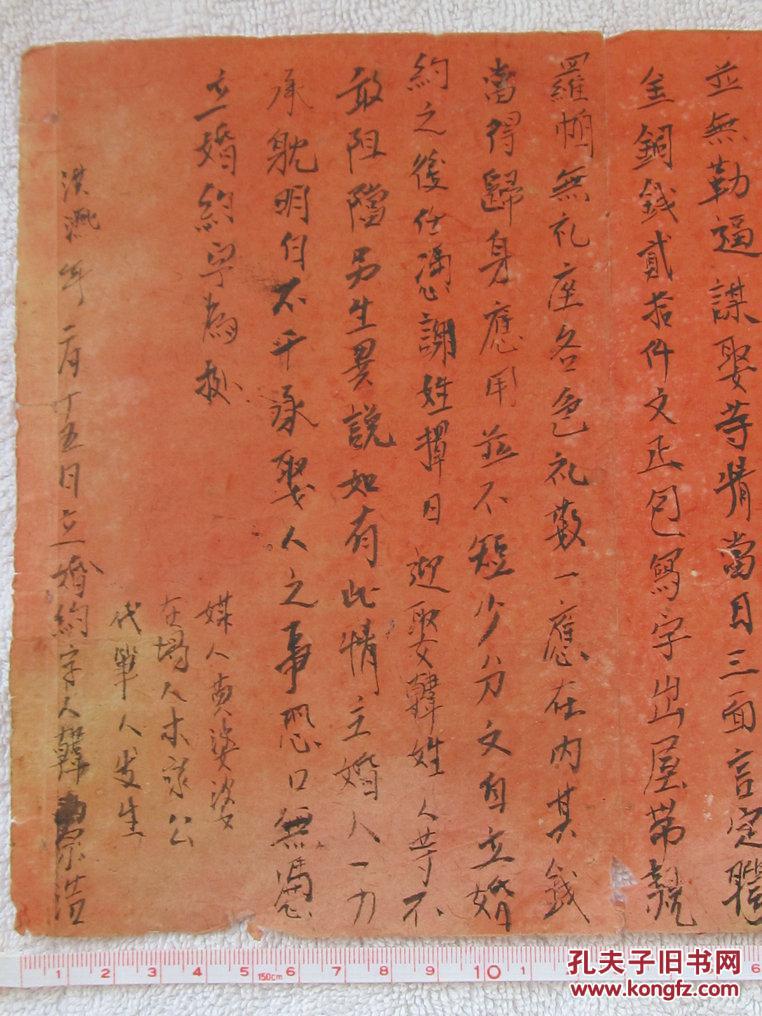 並無勒逼謀娶等情當日三面言定聘
金銅錢貳拾仟文正包寫字出屋帶親
羅帕無礼座各色礼数一應在内其錢
當得歸身應用並不短少分文自立婚
約之後任憑謝姓擇日迎娶韓姓人等不
敢阻擋另生異説如有此情主婚人一力
承躭明白不干承娶人之事恐口無憑
立婚約字為據
媒人黄婆婆
在塲人木求公
代筆人发生
年二月十五日立婚約字人韓宗浩
1 2 3 4 5 150cm 6 7 8 9 10 1 2 3 5 6
孔夫子旧书网
www.kongfz.com